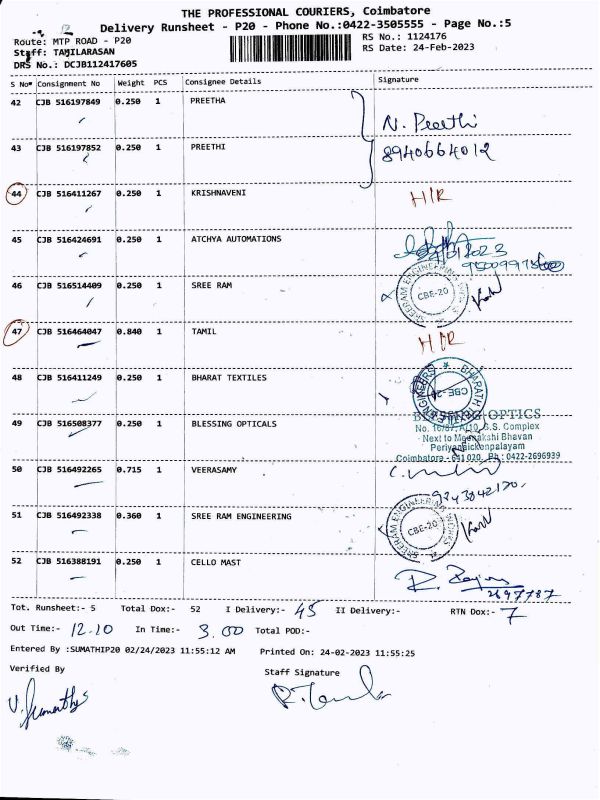 THE PROFESSIONAL COURIERS, Coimbatore
Delivery Runsheet - P20 - Phone No.:0422-3505555 - Page No.:5
Route: MTP ROAD - P20
RS No.: 1124176
Staff: TAMILARASAN
RS Date: 24-Feb-2023
DRS No.: DCJB112417605
S No* Consignment No Weight PCS Consignee Details Signature
42 CJB 516197849 0.250 1 PREETHA
N. Preethi
43 CJB 516197852 0.250 1 PREETHI 8940664012
44 CJB 516411267 0.250 1 KRISHNAVENI H/R
45 CJB 516424691 0.250 1 ATCHYA AUTOMATIONS
46 CJB 516514409 0.250 1 SREE RAM
SREERAM ENGINEERING WORKS
CBE-20
47 CJB 516464047 0.840 1 TAMIL H/R
48 CJB 516411249 0.250 1 BHARAT TEXTILES
CBE-20
49 CJB 516508377 0.250 1 BLESSING OPTICALS
BLESSING OPTICS
No. 16/87, A/10, S.S. Complex
Next to Meenakshi Bhavan
Periyanaickenpalayam
Coimbatore - 641 020. Ph : 0422-2696939
50 CJB 516492265 0.715 1 VEERASAMY
9243842120.
51 CJB 516492338 0.360 1 SREE RAM ENGINEERING
SREERAM ENGINEERING WORKS
CBE-20
52 CJB 516388191 0.250 1 CELLO MAST
2697787
Tot. Runsheet:- 5 Total Dox:- 52 I Delivery:- 45 II Delivery:- RTN Dox:- 7
Out Time:- 12.10 In Time:- 3.00 Total POD:-
Entered By :SUMATHIP20 02/24/2023 11:55:12 AM Printed On: 24-02-2023 11:55:25
Verified By Staff Signature